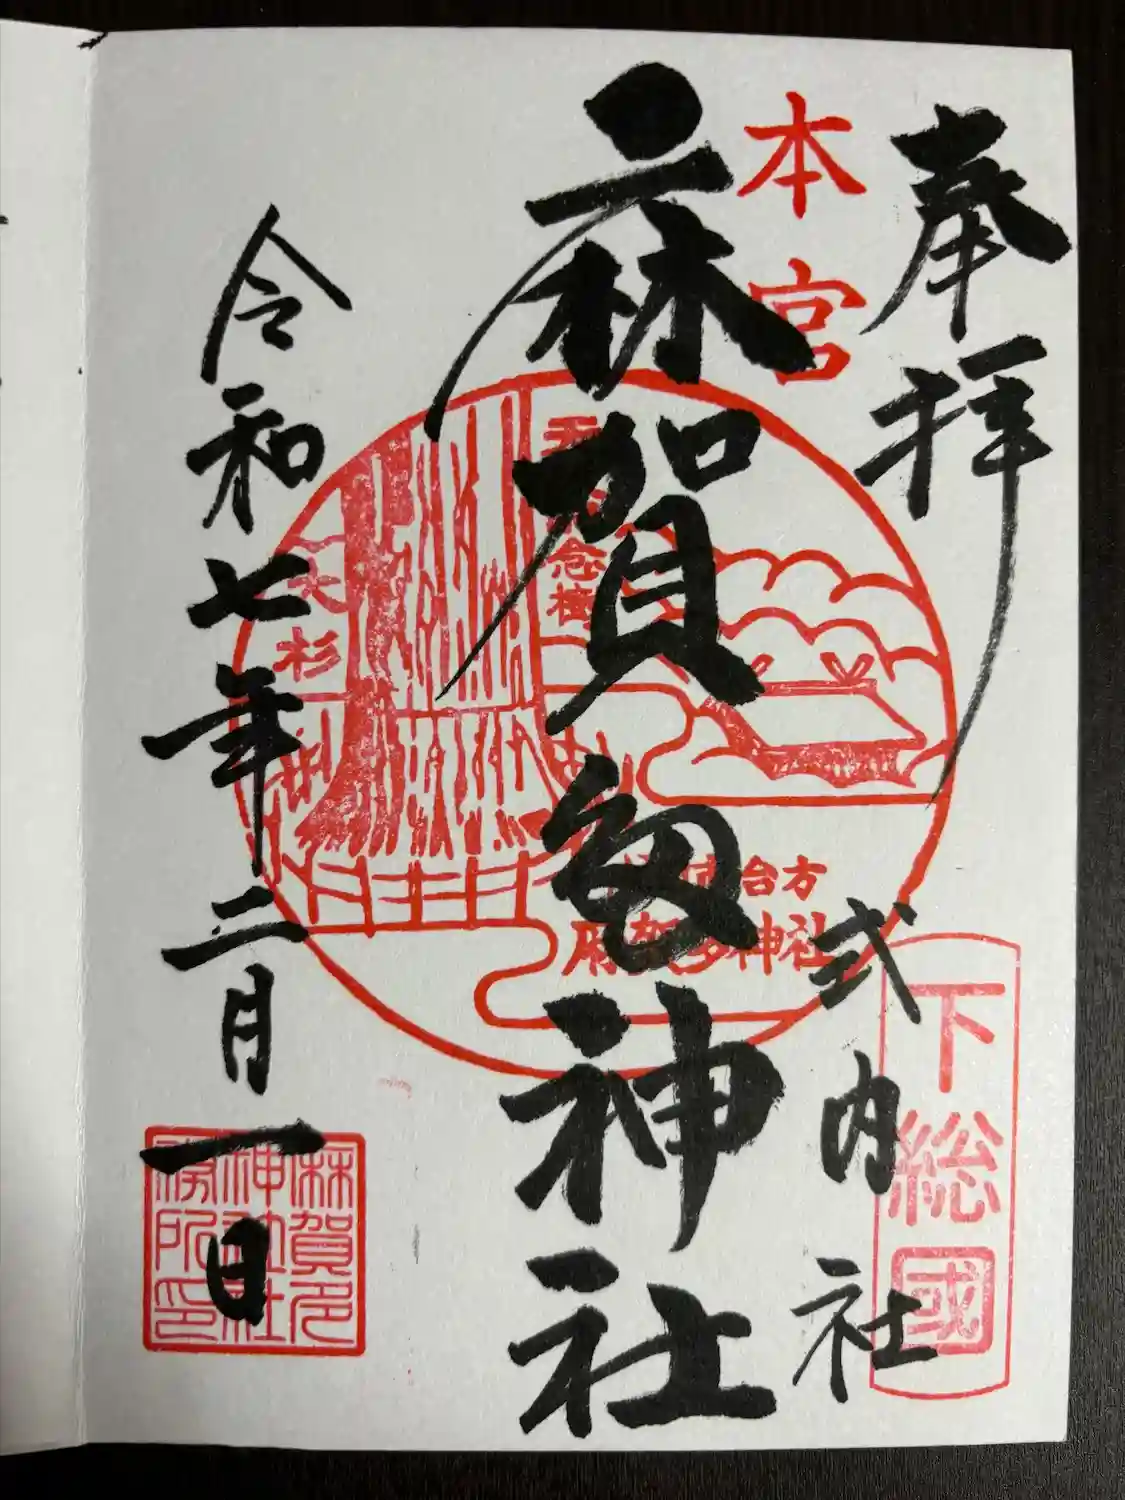 奉拝
本宮
式内社
下総國
麻賀多神社
念樹
大杉
台方
麻賀多神社
令和七年二月一日
麻賀多
神社社
務所印